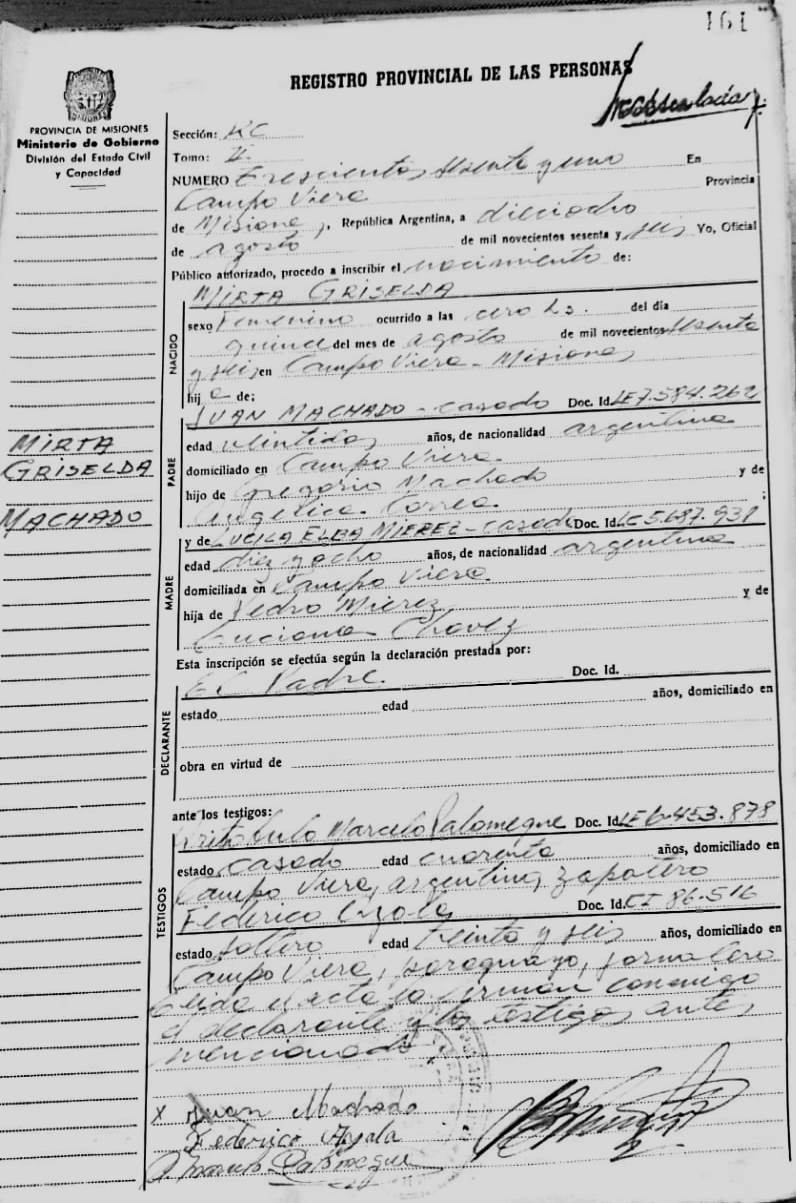 161
REGISTRO PROVINCIAL DE LAS PERSONAS
PROVINCIA DE MISIONES
Ministerio de Gobierno
División del Estado Civil
y Capacidad
Sección:
Tomo: II
NUMERO Trescientos sesenta y uno En
Campo Viera Provincia
de Misiones, República Argentina, a dieciocho
de agosto de mil novecientos sesenta y seis Yo, Oficial
Público autorizado, procedo a inscribir el nacimiento de:
NACIDO
MIRTA GRISELDA
sexo Femenino ocurrido a las cero hs. del día
quince del mes de agosto de mil novecientos sesenta
y seis, en Campo Viera - Misiones
hij a de:
PADRE
JUAN MACHADO - casado Doc. Id. LE 7.584.262
edad veintidos años, de nacionalidad argentina
domiciliado en Campo Viera
hijo de Gregorio Machado y de
Angelica Correa ;
MADRE
y de LUCILA ELBA MIEREZ - casada Doc. Id. LC 5.687.931
edad diez y ocho años, de nacionalidad argentina
domiciliada en Campo Viera
hija de Pedro Mierez y de
Luciana Chavez
MIRTA
GRISELDA
MACHADO
Esta inscripción se efectúa según la declaración prestada por:
DECLARANTE
El Padre. Doc. Id.
estado edad años, domiciliado en
obra en virtud de
ante los testigos:
TESTIGOS
Marcelo Palomeque Doc. Id. LE 6.453.878
estado casado edad cuarenta años, domiciliado en
Campo Viera, argentino, zapatero
Federico Ayala Doc. Id. CI 86.516
estado soltero edad treinta y seis años, domiciliado en
Campo Viera, paraguayo, jornalero
Leida el acta la firman conmigo
el declarante y los testigos antes
mencionados.
x Juan Machado
Federico Ayala
Palomeque